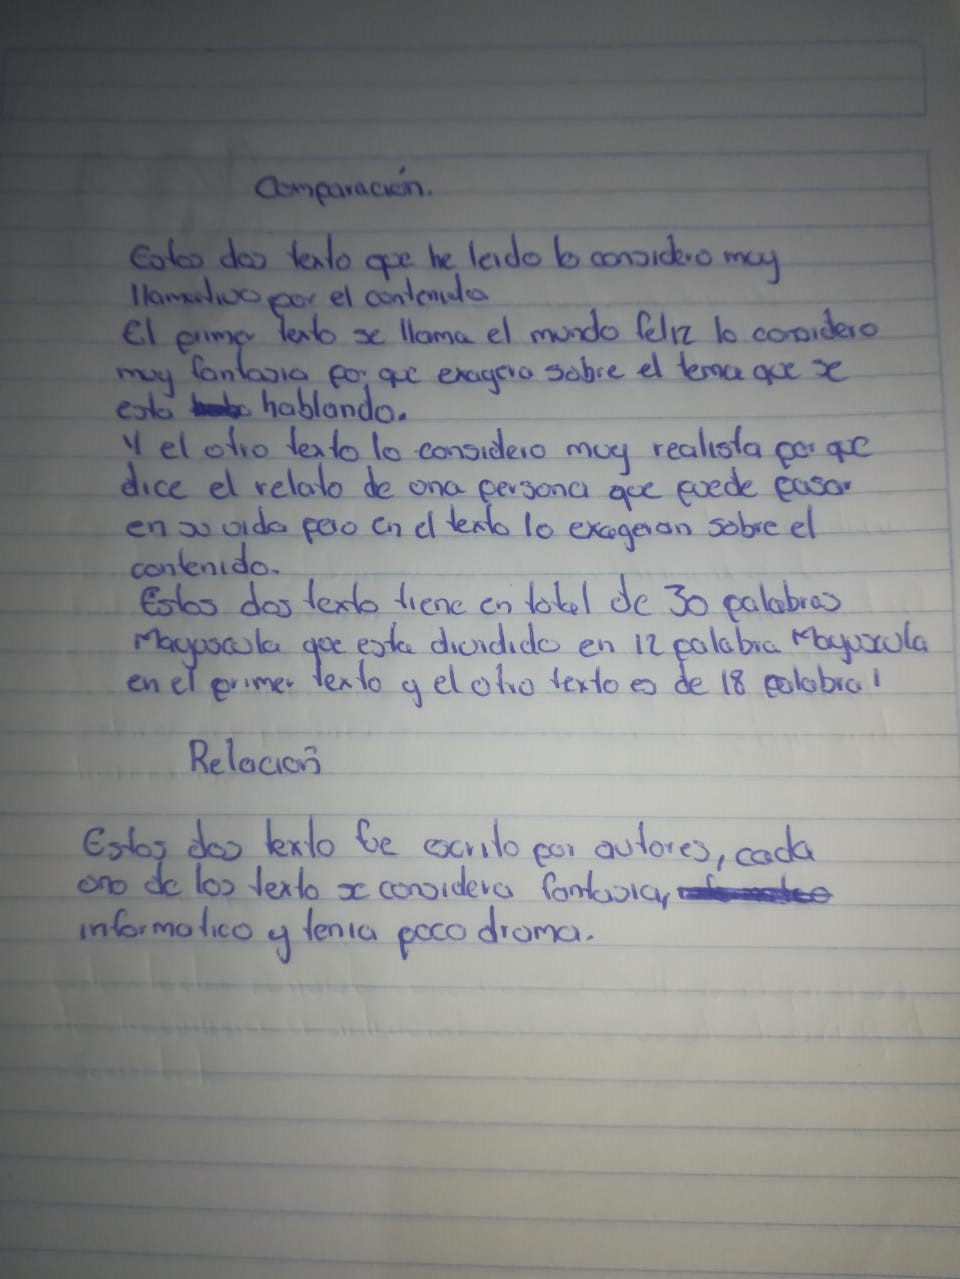 Comparación.
Estos dos texto que he leido lo considero muy
llamativo por el contenido
El primer texto se llama el mundo feliz lo considero
muy fantasia por que exagera sobre el tema que se
esta hablando.
Y el otro texto lo considero muy realista por que
dice el relato de una persona que puede pasar
en su vida pero en el texto lo exageran sobre el
contenido.
Estos dos texto tiene en total de 30 palabras
Mayuscula que esta dividido en 12 palabra Mayuscula
en el primer texto y el otro texto es de 18 palabra
Relación
Estos dos texto fue escrito por autores, cada
uno de los texto se considera fantasia,
informatico y tenia poco drama.